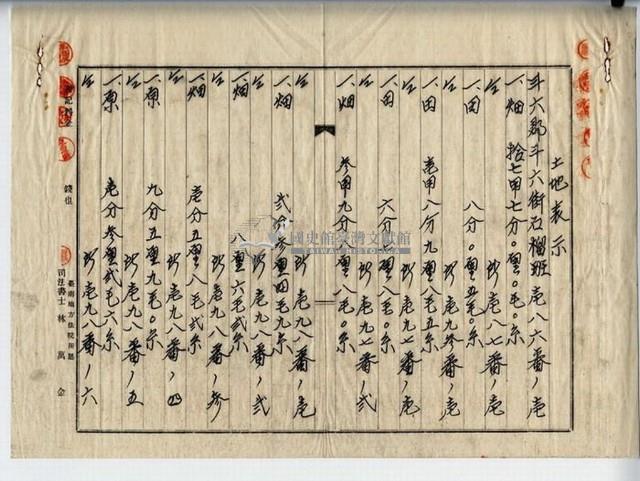 土地表示
斗六郡斗六街石榴班壱八六番ノ壱
一、畑 拾七甲七分〇厘〇毛〇糸
仝 所壱八七番ノ壱
一、田 八分〇厘五毛〇糸
仝 所壱九参番ノ壱
一、田 壱甲八分九厘八毛五糸
仝 所壱九七番ノ壱
一、田 六分〇厘八毛〇糸
仝 所壱九七番ノ弐
一、畑 参甲九分〇厘
仝 所壱九八番ノ壱
一、畑 弐分参厘四毛九糸
仝 所壱九八番ノ弐
一、畑 八厘六毛弐糸
仝 所壱九八番ノ参
一、畑 壱分五厘八毛弐糸
仝 所壱九八番ノ四
一、原 九分五厘九毛〇糸
仝 所壱九八番ノ五
一、原 壱分参厘弐毛六糸
仝 所壱九八番ノ六
錢也
臺南地方法院所屬
司法書士 林萬金
國史館臺灣文獻館
TAIWAN HISTORICA